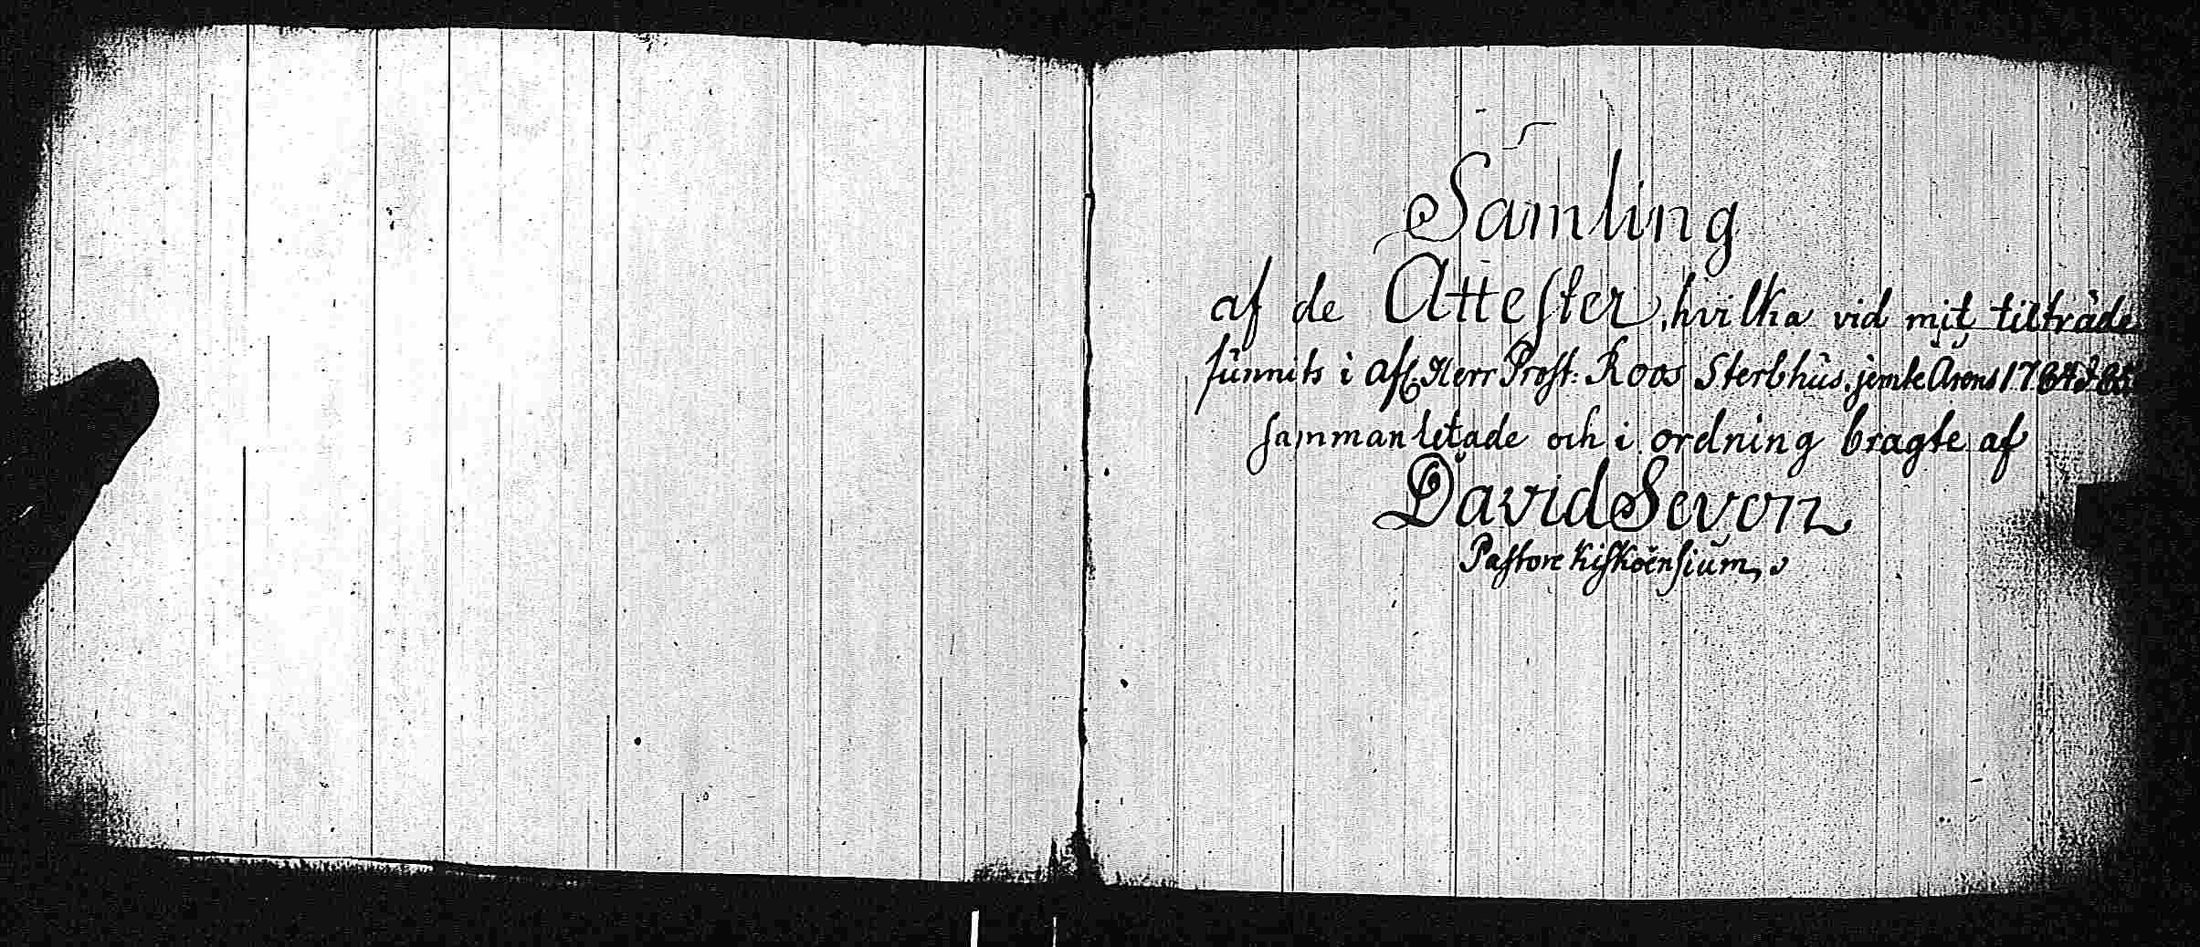 Samling
af de Attester, hvilka vid mit tilträde
funnits i afl. Herr Prost: Roos Sterbhus, jemte Årens 1784 & 85
sammanletade och i ordning bragte af
David Sevon
Pastore Kiskoënsium,